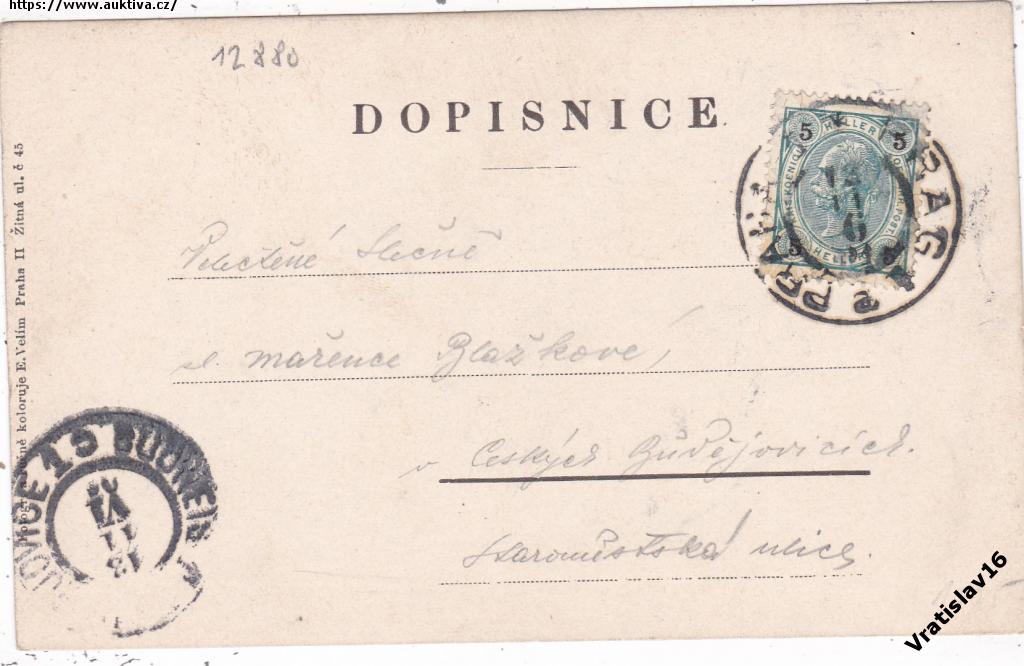 https://www.auktiva.cz/
12880
DOPISNICE
5 HELLER 5
5 HELLER 5
PRAG
2 PRAHA
Velectěné Slečně
sl. Mařence Blažkové,
v Českých Budějovicích.
Staroměstská ulice.
koloruje E. Velím Praha II Žitná ul. č 45
BUDWEIS
Vratislav16